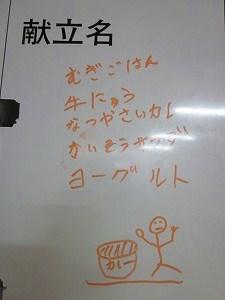 献立名
むぎごはん
牛にゅう
なつやさいカレ
かいそうサラダ
ヨーグルト
カレー